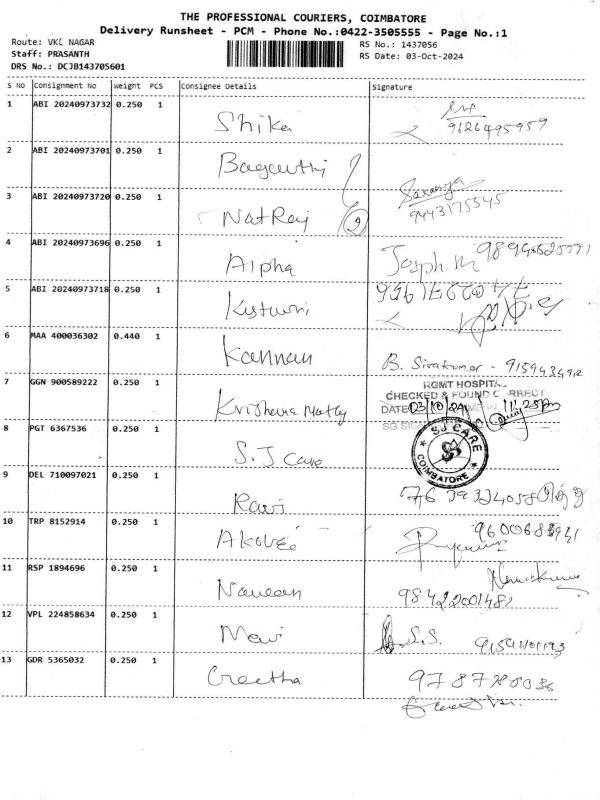 THE PROFESSIONAL COURIERS, COIMBATORE
Delivery Runsheet - PCM - Phone No.:0422-3505555 - Page No.:1
Route: VKL NAGAR
Staff: PRASANTH
DRS No.: DCJB143705601
RS No.: 1437056
RS Date: 03-Oct-2024
S NO Consignment No Weight PCS Consignee Details Signature
1 ABI 20240973732 0.250 1 Shika
9626495959
2 ABI 20240973701 0.250 1
3 ABI 20240973720 0.250 1 NatRaj 2
Saranya
9443175545
4 ABI 20240973696 0.250 1 Alpha Josph. M
5 ABI 20240973718 0.250 1
6 MAA 400036302 0.440 1 Kannan B. Sivakumar -
7 GGN 900589222 0.250 1
RGMT HOSPITAL
CHECKED & FOUND CORRECT
DATE 03/10/24
8 PGT 6367536 0.250 1 S.J Care
SJ CARE
COIMBATORE
9 DEL 710097021 0.250 1 Ravi
10 TRP 8152914 0.250 1
11 RSP 1894696 0.250 1 Naveen
9842200148
12 VPL 224858634 0.250 1 S.S.
13 GDR 5365032 0.250 1 Geetha 9787780036